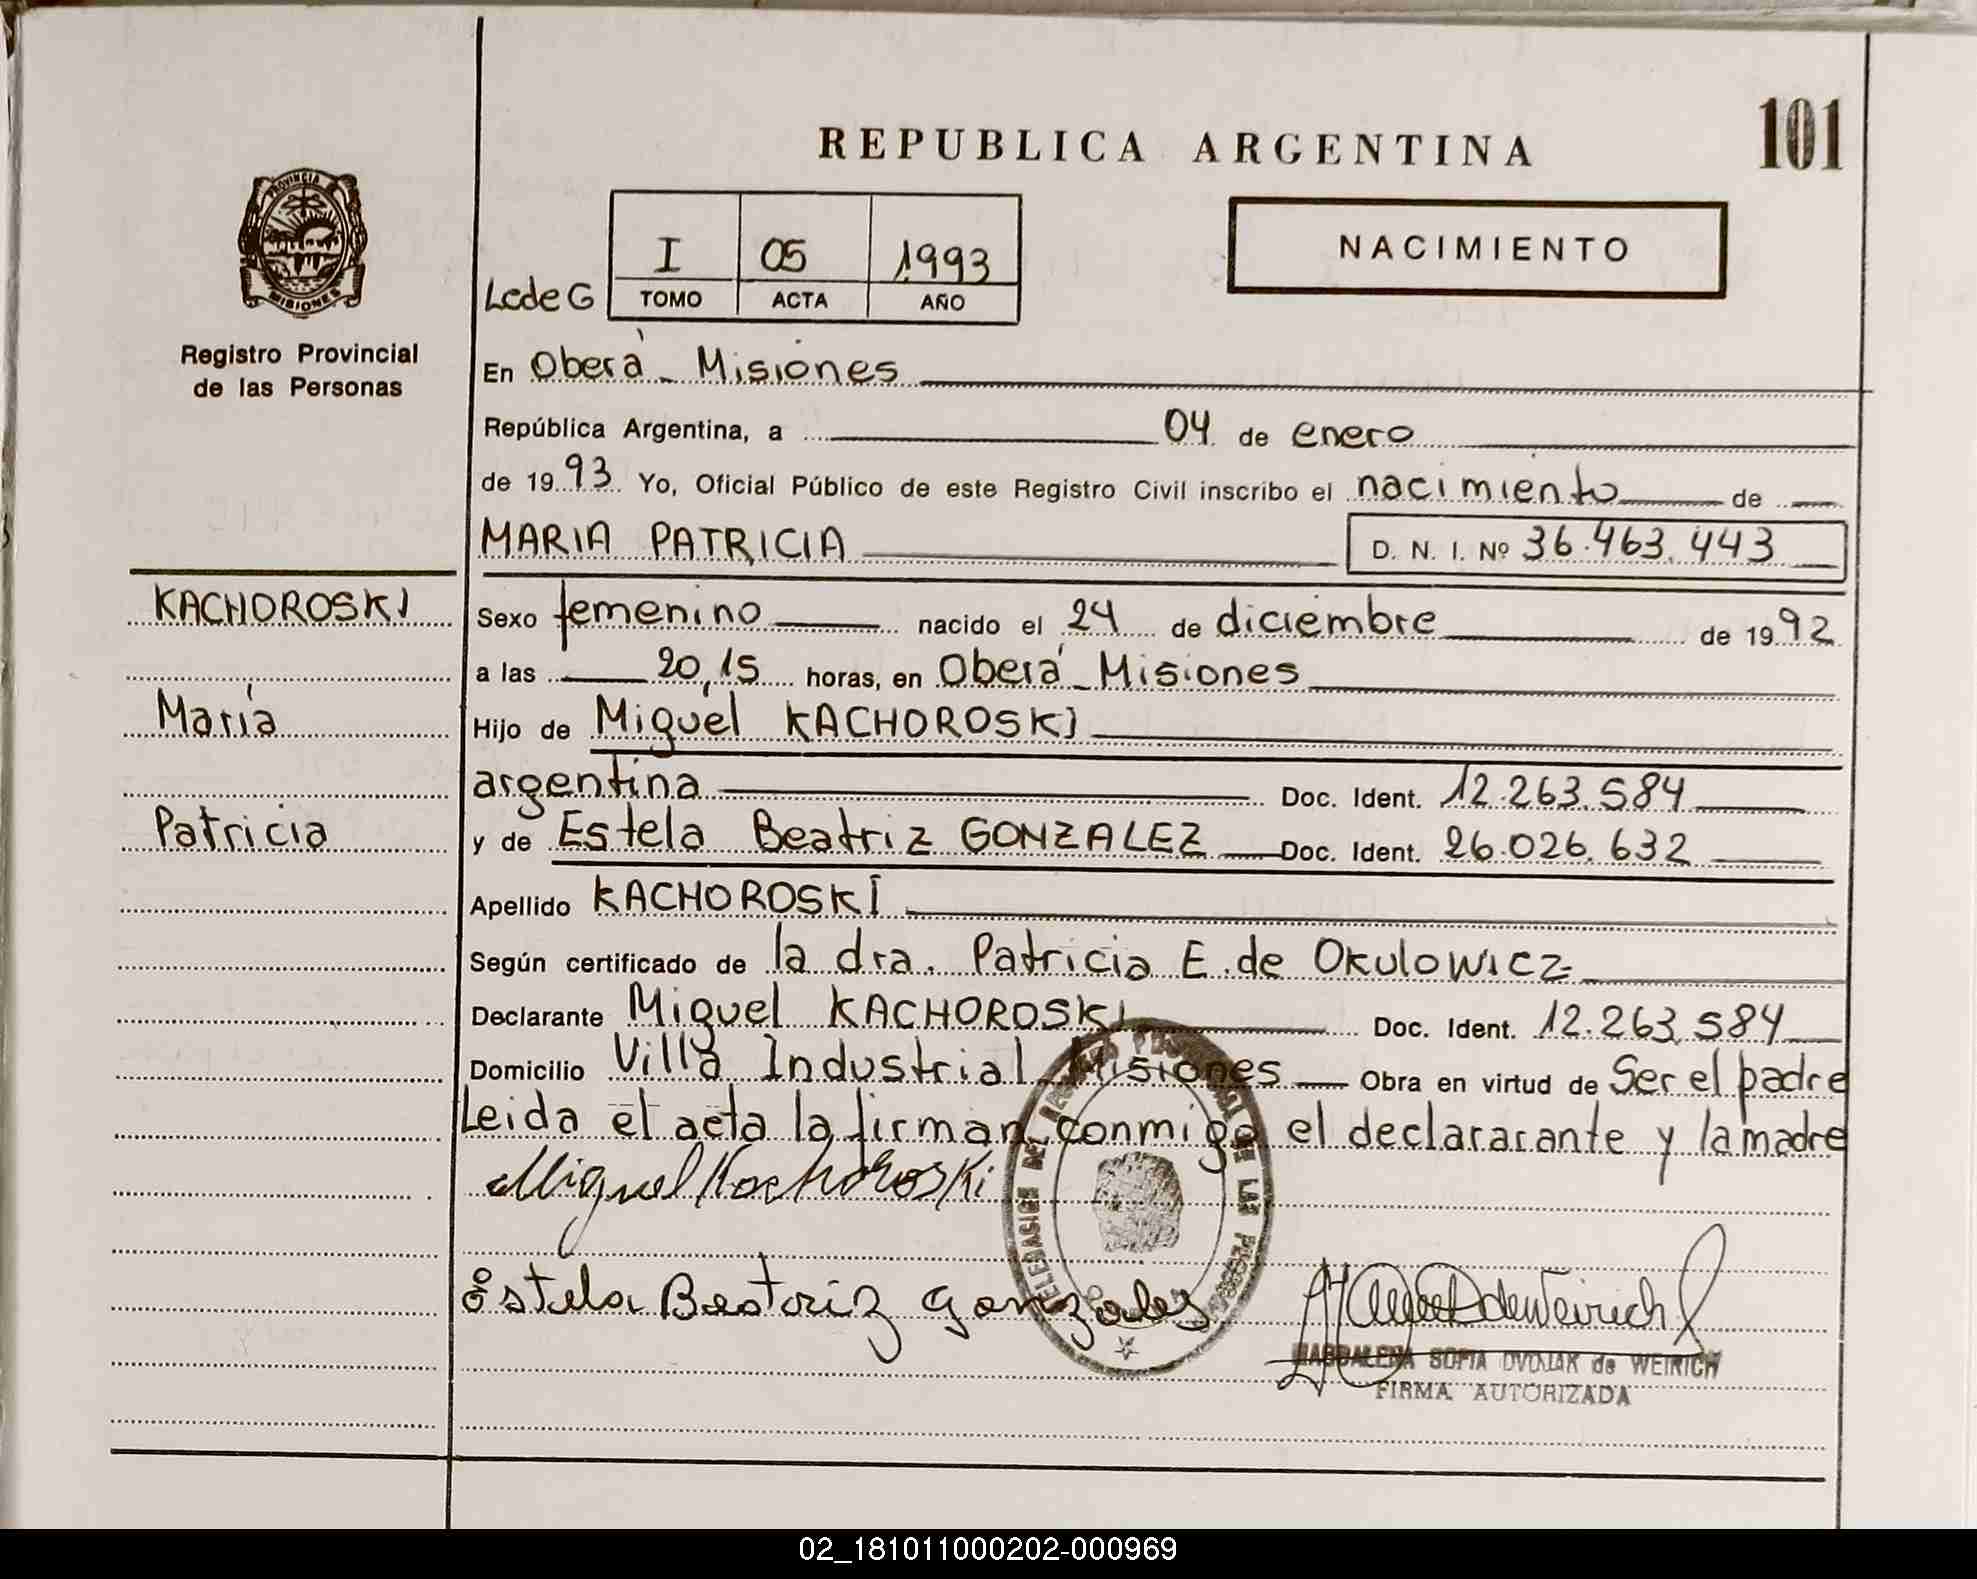 101
REPUBLICA ARGENTINA
PROVINCIA
MISIONES
NACIMIENTO
I 05 1993
Lcde G TOMO ACTA AÑO
Registro Provincial
de las Personas
En Oberá - Misiones
República Argentina, a 04 de enero
de 1993 Yo, Oficial Público de este Registro Civil inscribo el nacimiento de
MARIA PATRICIA D. N. I. Nº 36.463.443
KACHOROSKI
María
Patricia
Sexo femenino nacido el 24 de diciembre de 1992
a las 20,15 horas, en Oberá - Misiones
Hijo de Miguel KACHOROSKI
argentina Doc. Ident. 12.263.584
y de Estela Beatriz GONZALEZ Doc. Ident. 26.026.632
Apellido KACHOROSKI
Según certificado de la dra. Patricia E. de Okulowicz
Declarante Miguel KACHOROSKI Doc. Ident. 12.263.584
Domicilio Villa Industrial Misiones Obra en virtud de Ser el padre
Leida el acta la firman conmigo el declararante y la madre
Miguel Kachoroski
Estela Beatriz Gonzales
DE LAS
MAGDALENA SOFIA DVOJAK de WEIRICH
FIRMA AUTORIZADA
02_181011000202-000969